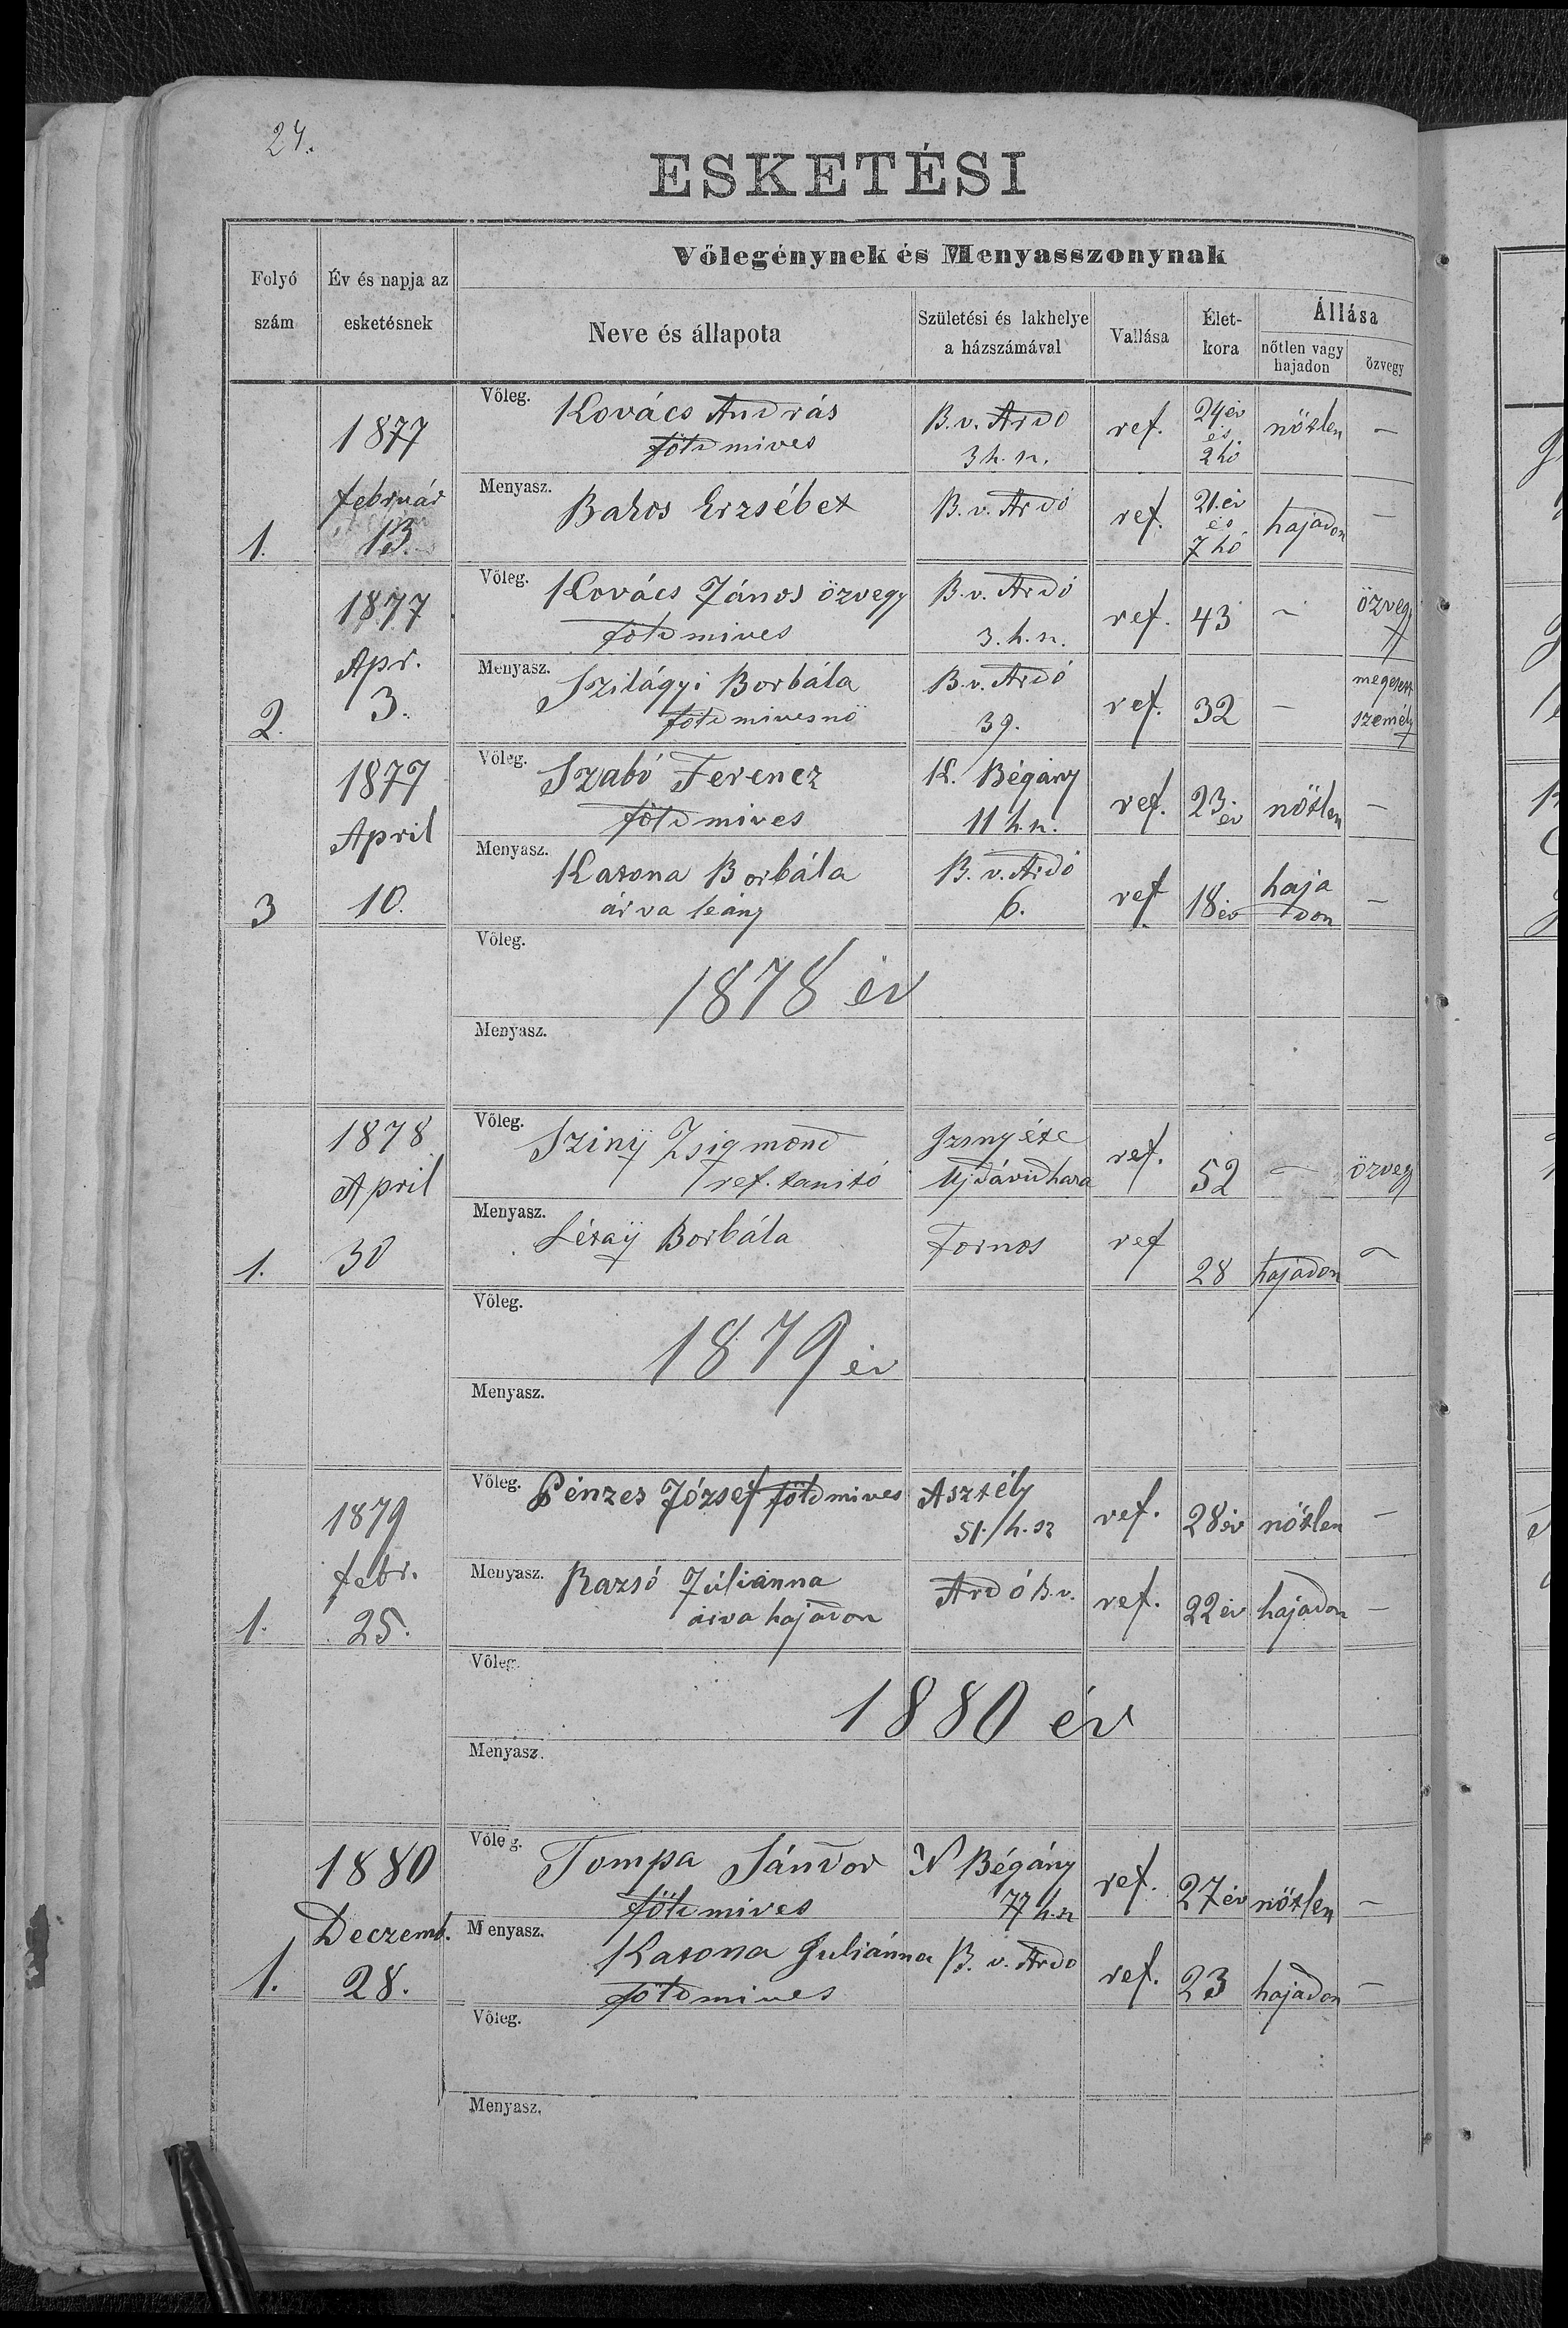 24.
ESKETÉSI
Folyó szám
Év és napja az esketésnek
Vőlegénynek és Menyasszonynak
Neve és állapota
Születési és lakhelye a házszámával
Vallása
Élet-kora
Állása
nőtlen vagy hajadon
özvegy
1877
február
13.
1.
Vőleg. Kovács András
földmives
B. v. Ardó
3 h. n.
ref.
24 év
és
2 hó
nőtlen
–
Menyasz. Bakos Erzsébet
B. v. Ardó
ref.
21. év
és
7 hó
hajadon
–
1877
Apr.
3.
2.
Vőleg. Kovács János özvegy
földmives
B. v. Ardó
3. h. n.
ref.
43
–
özvegy
Menyasz. Szilágyi Borbála
földmivesnő
B. v. Ardó
39.
ref.
32
–
megesett
személy
1877
April
10.
3
Vőleg. Szabó Ferencz
földmives
K. Bégány
11 h. n.
ref.
23. év
nőtlen
–
Menyasz. Katona Borbála
árva leány
B. v. Ardó
6.
ref.
18 év
haja
don
–
Vőleg.
1878 év
Menyasz.
1878
April
30
1.
Vőleg. Szinÿ Zsigmond
ref. tanitó
Ujdávidháza
ref.
52
–
özvegy
Menyasz. Létaÿ Borbála
Fornos
ref
28
hajadon
–
Vőleg.
1879 év
Menyasz.
1879
febr.
25.
1.
Vőleg. Pénzes József földmives
Asztély
51./h. sz
ref.
28 év
nőtlen
–
Menyasz. Razsó Júliánna
árva hajadon
Ardó B. v.
ref.
22 év
hajadon
–
Vőleg.
1880 év
Menyasz.
1880
Deczemb.
28.
1.
Vőleg. Tompa Sándor
földmives
N Bégány
77 h. n
ref.
27 év
nőtlen
–
Menyasz. Katona Juliánna
földmives
B. v. Ardo
ref.
23
hajadon
–
Vőleg.
Menyasz.